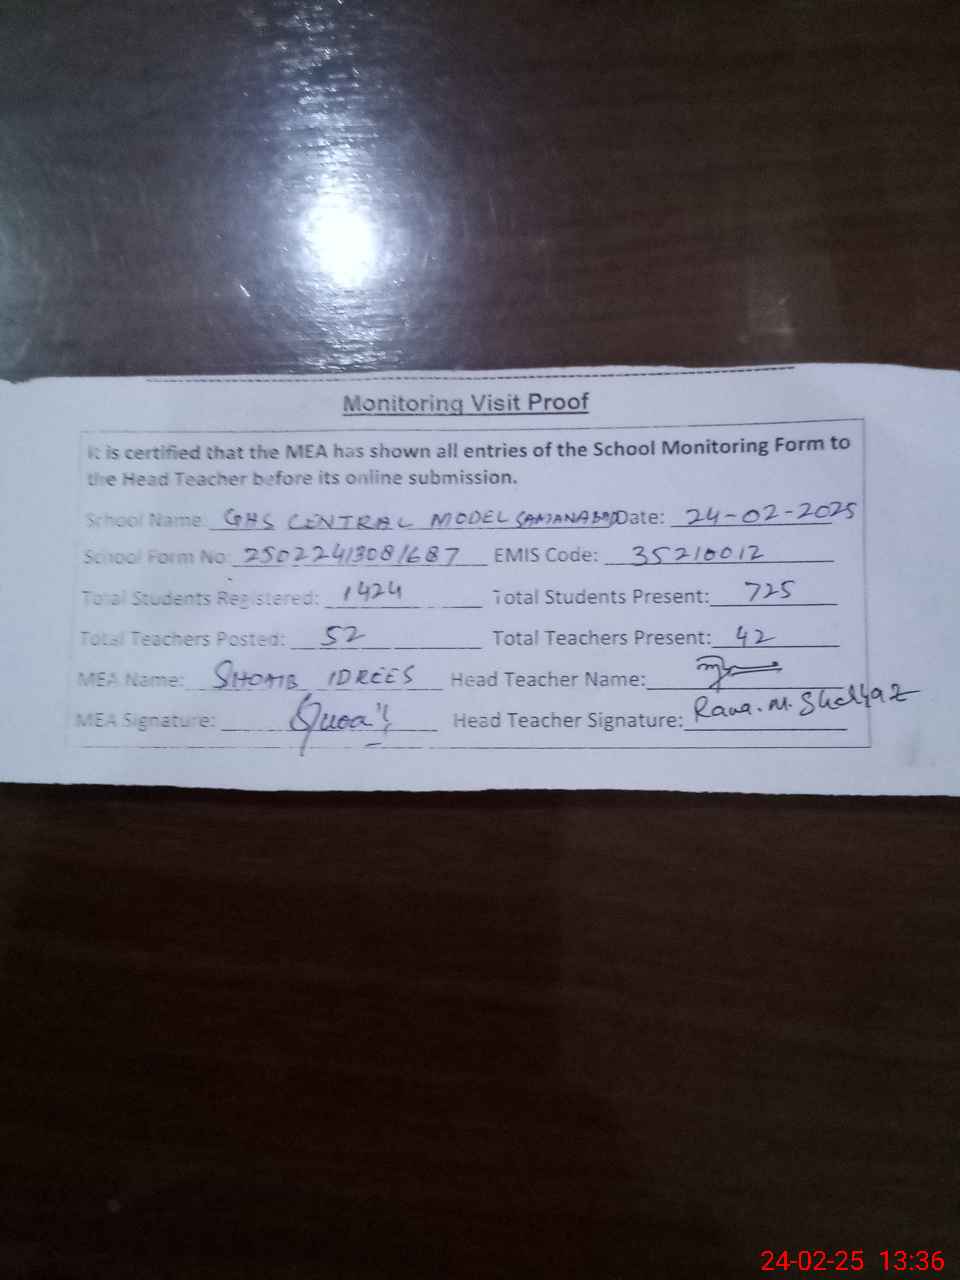 Monitoring Visit Proof
It is certified that the MEA has shown all entries of the School Monitoring Form to
the Head Teacher before its online submission.
School Name: GHS CENTRAL MODEL SAMANABAD Date: 24-02-2025
School Form No: 25022413081687 EMIS Code: 35210012
Total Students Registered: 1424 Total Students Present: 725
Total Teachers Posted: 52 Total Teachers Present: 42
MEA Name: SHOAIB IDREES Head Teacher Name:
MEA Signature: Head Teacher Signature: Rana. M.
24-02-25 13:36